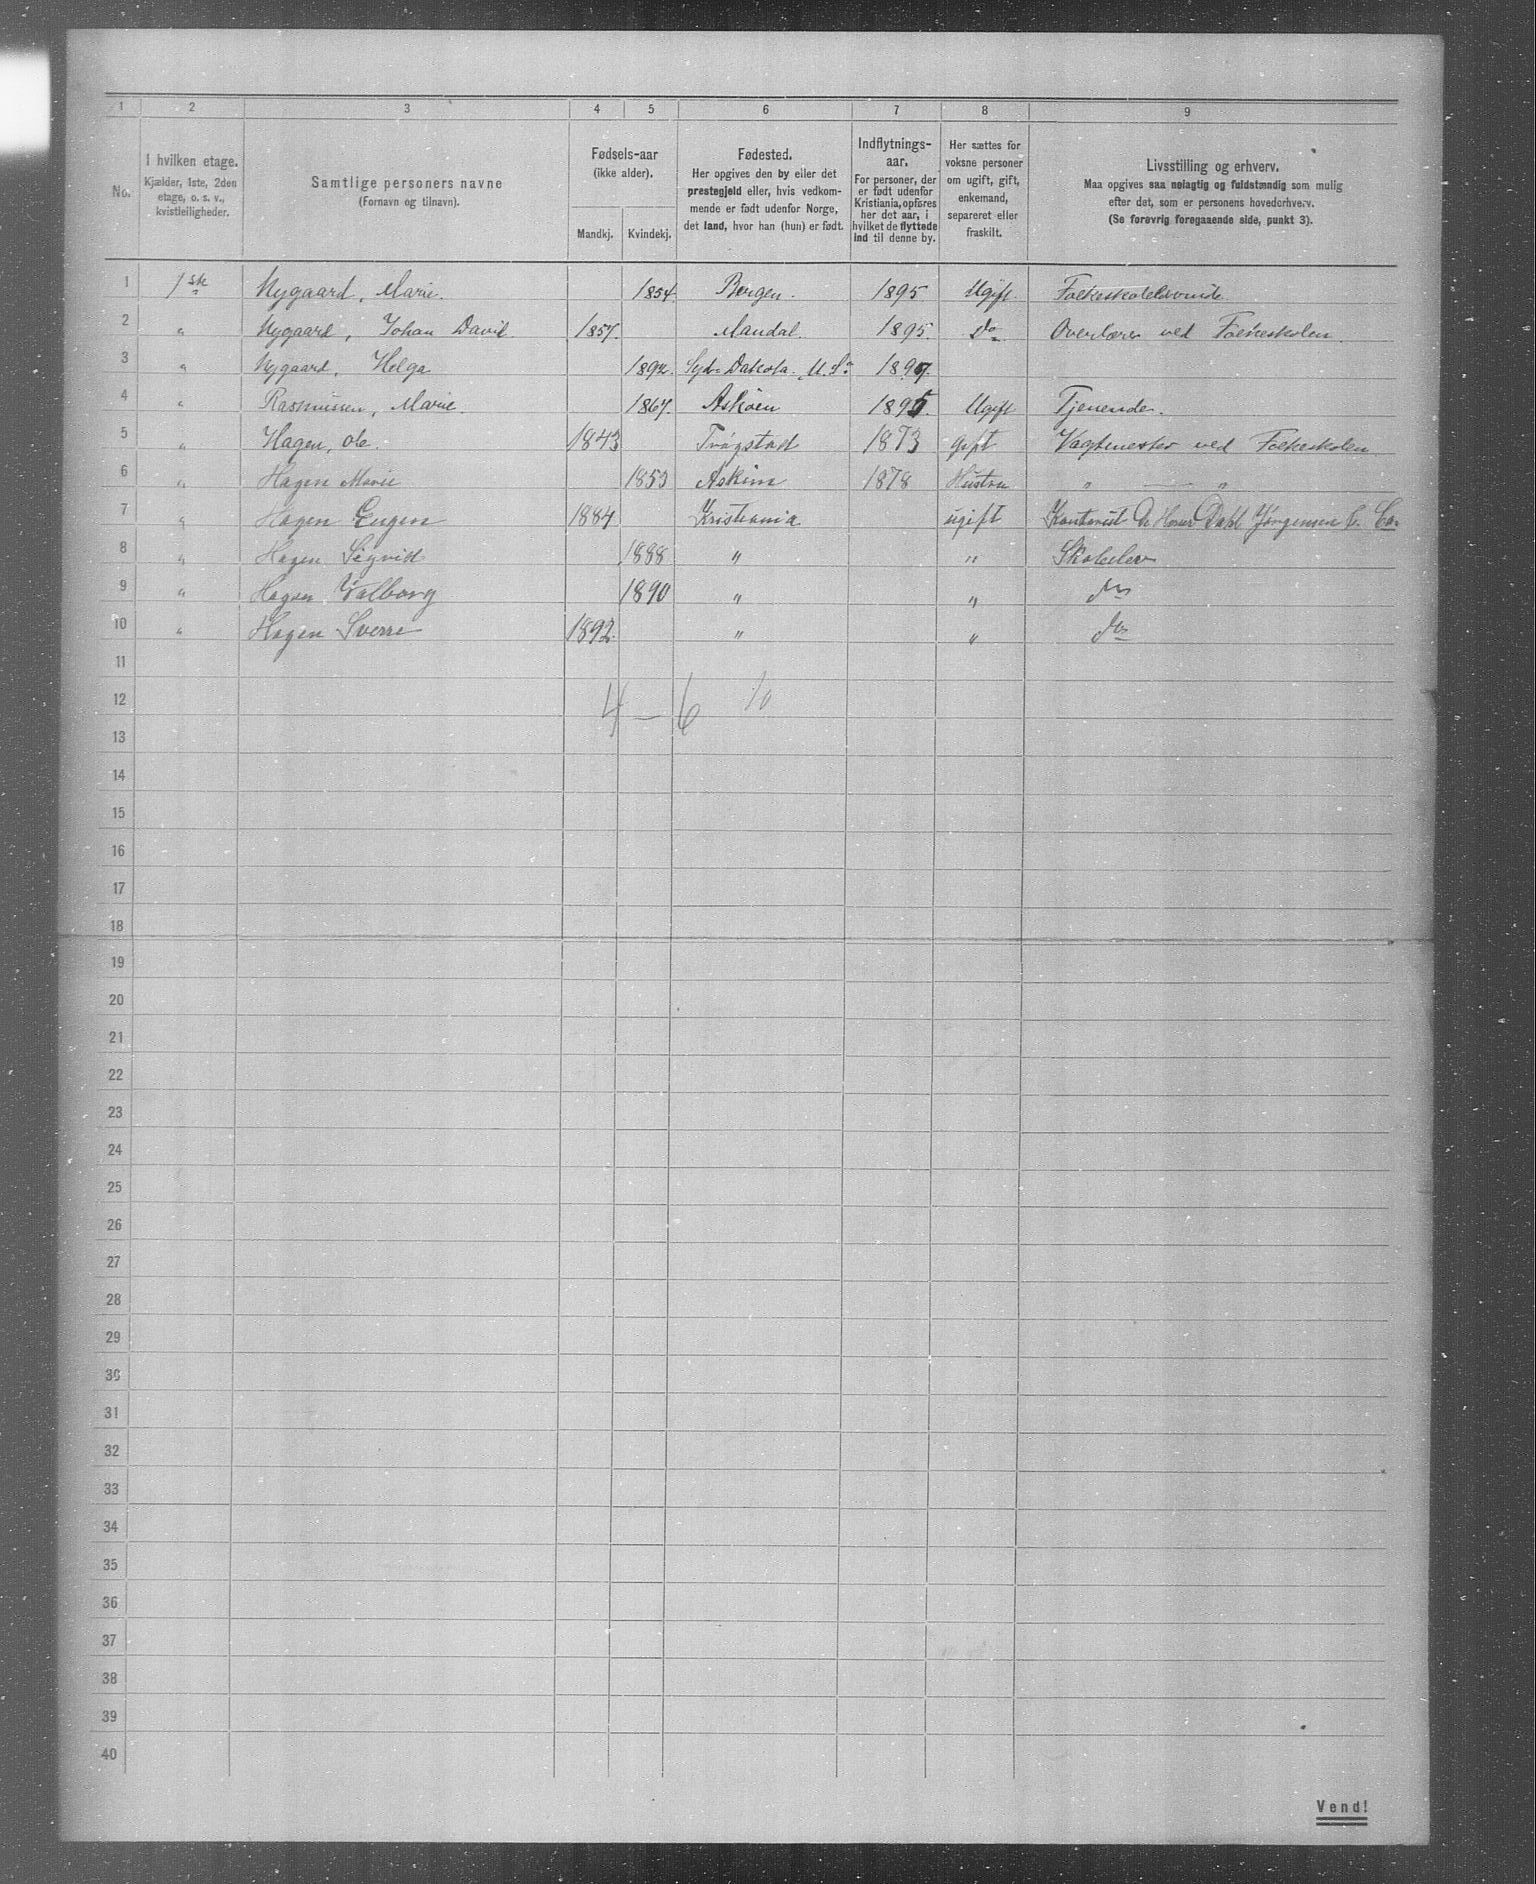 1 2 3 4 5 6 7 8 9
No.
I hvilken etage.
Kjælder, 1ste, 2den
etage, o. s. v.,
kvistleiligheder.
Samtlige personers navne
(Fornavn og tilnavn).
Fødsels-aar
(ikke alder).
Mandkj. Kvindekj.
Fødested.
Her opgives den by eller det
prestegjeld eller, hvis vedkom-
mende er født udenfor Norge,
det land, hvor han (hun) er født.
Indflytnings-
aar.
For personer, der
er født udenfor
Kristiania, opføres
her det aar, i
hvilket de flyttede
ind til denne by.
Her sættes for
voksne personer
om ugift, gift,
enkemand,
separeret eller
fraskilt.
Livsstilling og erhverv.
Maa opgives saa nøiagtig og fuldstændig som mulig
efter det, som er personens hovederhverv.
(Se forøvrig foregaaende side, punkt 3).
1 1ste Nygaard, Marie. 1854. Bergen. 1895 Ugift.
2 " Nygaard, Johan David. 1857. Mandal. 1895. Do Overlærer ved Folkeskolen.
3 " Nygaard, Helga 1892. Syd-Dakota. U.S. 1897.
4 " Rasmussen, Marie. 1867. Askøen 1895. Ugift Tjenende.
5 " Hagen, Ole 1843 Trøgstad 1873 gift Vagtmester ved Folkeskolen
6 " Hagen Marie 1853 Askim 1878 Hustru " — "
7 " Hagen Eugen 1884 Kristiania ugift Kontorist De Herrer Dahl Jørgensen & Co.
8 " Hagen Sigvid 1888 " " Skoleelev
9 " Hagen Valborg 1890 " " do
10 " Hagen Sverre 1892. " " do
11
12 4 — 6 10
13
14
15
16
17
18
19
20
21
22
23
24
25
26
27
28
29
30
31
32
33
34
35
36
37
38
39
40
Vend!